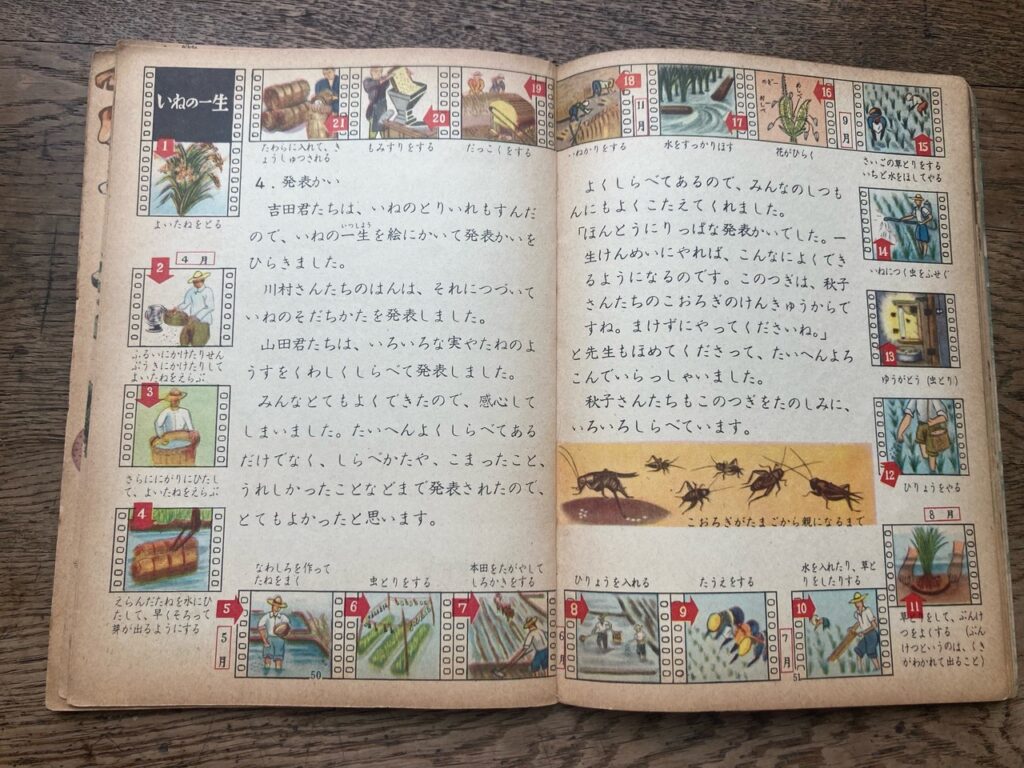 いねの一生
1
よいたねをとる
4月
2
ふるいにかけたりせん
ぷうきにかけたりして
よいたねをえらぶ
3
さらににがりにひたし
て、よいたねをえらぶ
4
えらんだたねを水にひ
たして、早くそろって
芽が出るようにする
5
5月
なわしろを作って
たねをまく
6
虫とりをする
7
本田をたがやして
しろかきをする
50
21
たわらに入れて、き
ょうしゅつされる
20
もみすりをする
19
だっこくをする
4. 発表かい
吉田君たちは、いねのとりいれもすんだ
いっしょう
ので、いねの一生を絵にかいて発表かいを
ひらきました。
川村さんたちのはんは、それにつづいて
いねのそだちかたを発表しました。
山田君たちは、いろいろな実やたねのよ
うすをくわしくしらべて発表しました。
みんなとてもよくできたので、感心して
しまいました。たいへんよくしらべてある
だけでなく、しらべかたや、こまったこと、
うれしかったことなどまで発表されたので、
とてもよかったと思います。
18
11月
いねかりをする
17
水をすっかりほす
16
めしべ
花がひらく
9月
15
さいごの草とりをする
いちど水をほしてやる
14
いねにつく虫をふせぐ
13
ゆうがとう(虫とり)
12
ひりょうをやる
8月
11
草とりをして、ぶんけ
つをよくする (ぶん
けつというのは、くき
がわかれて出ること)
よくしらべてあるので、みんなのしつも
んにもよくこたえてくれました。
「ほんとうにりっぱな発表かいでした。一
生けんめいにやれば、こんなによくでき
るようになるのです。このつぎは、秋子
さんたちのこおろぎのけんきゅうからで
すね。まけずにやってくださいね。」
と先生もほめてくださって、たいへんよろ
こんでいらっしゃいました。
秋子さんたちもこのつぎをたのしみに、
いろいろしらべています。
こおろぎがたまごから親になるまで
6月
8
ひりょうを入れる
9
たうえをする
7月
10
水を入れたり、草と
りをしたりする
51